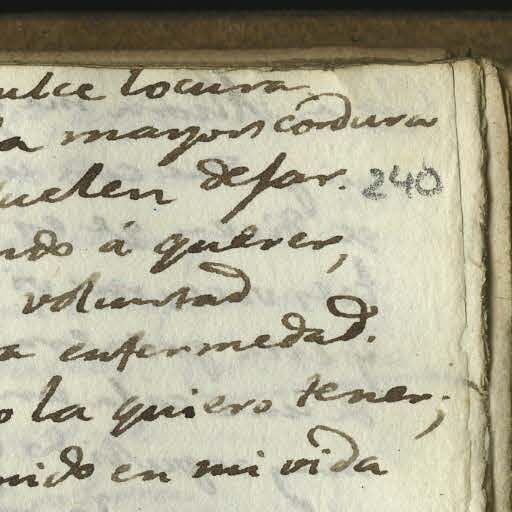 ulce locura
la mayor cordura
suelen dexar. 240
ndo á querer,
voluntad
a enfermedad.
o la quiero tener;
nido en mi vida